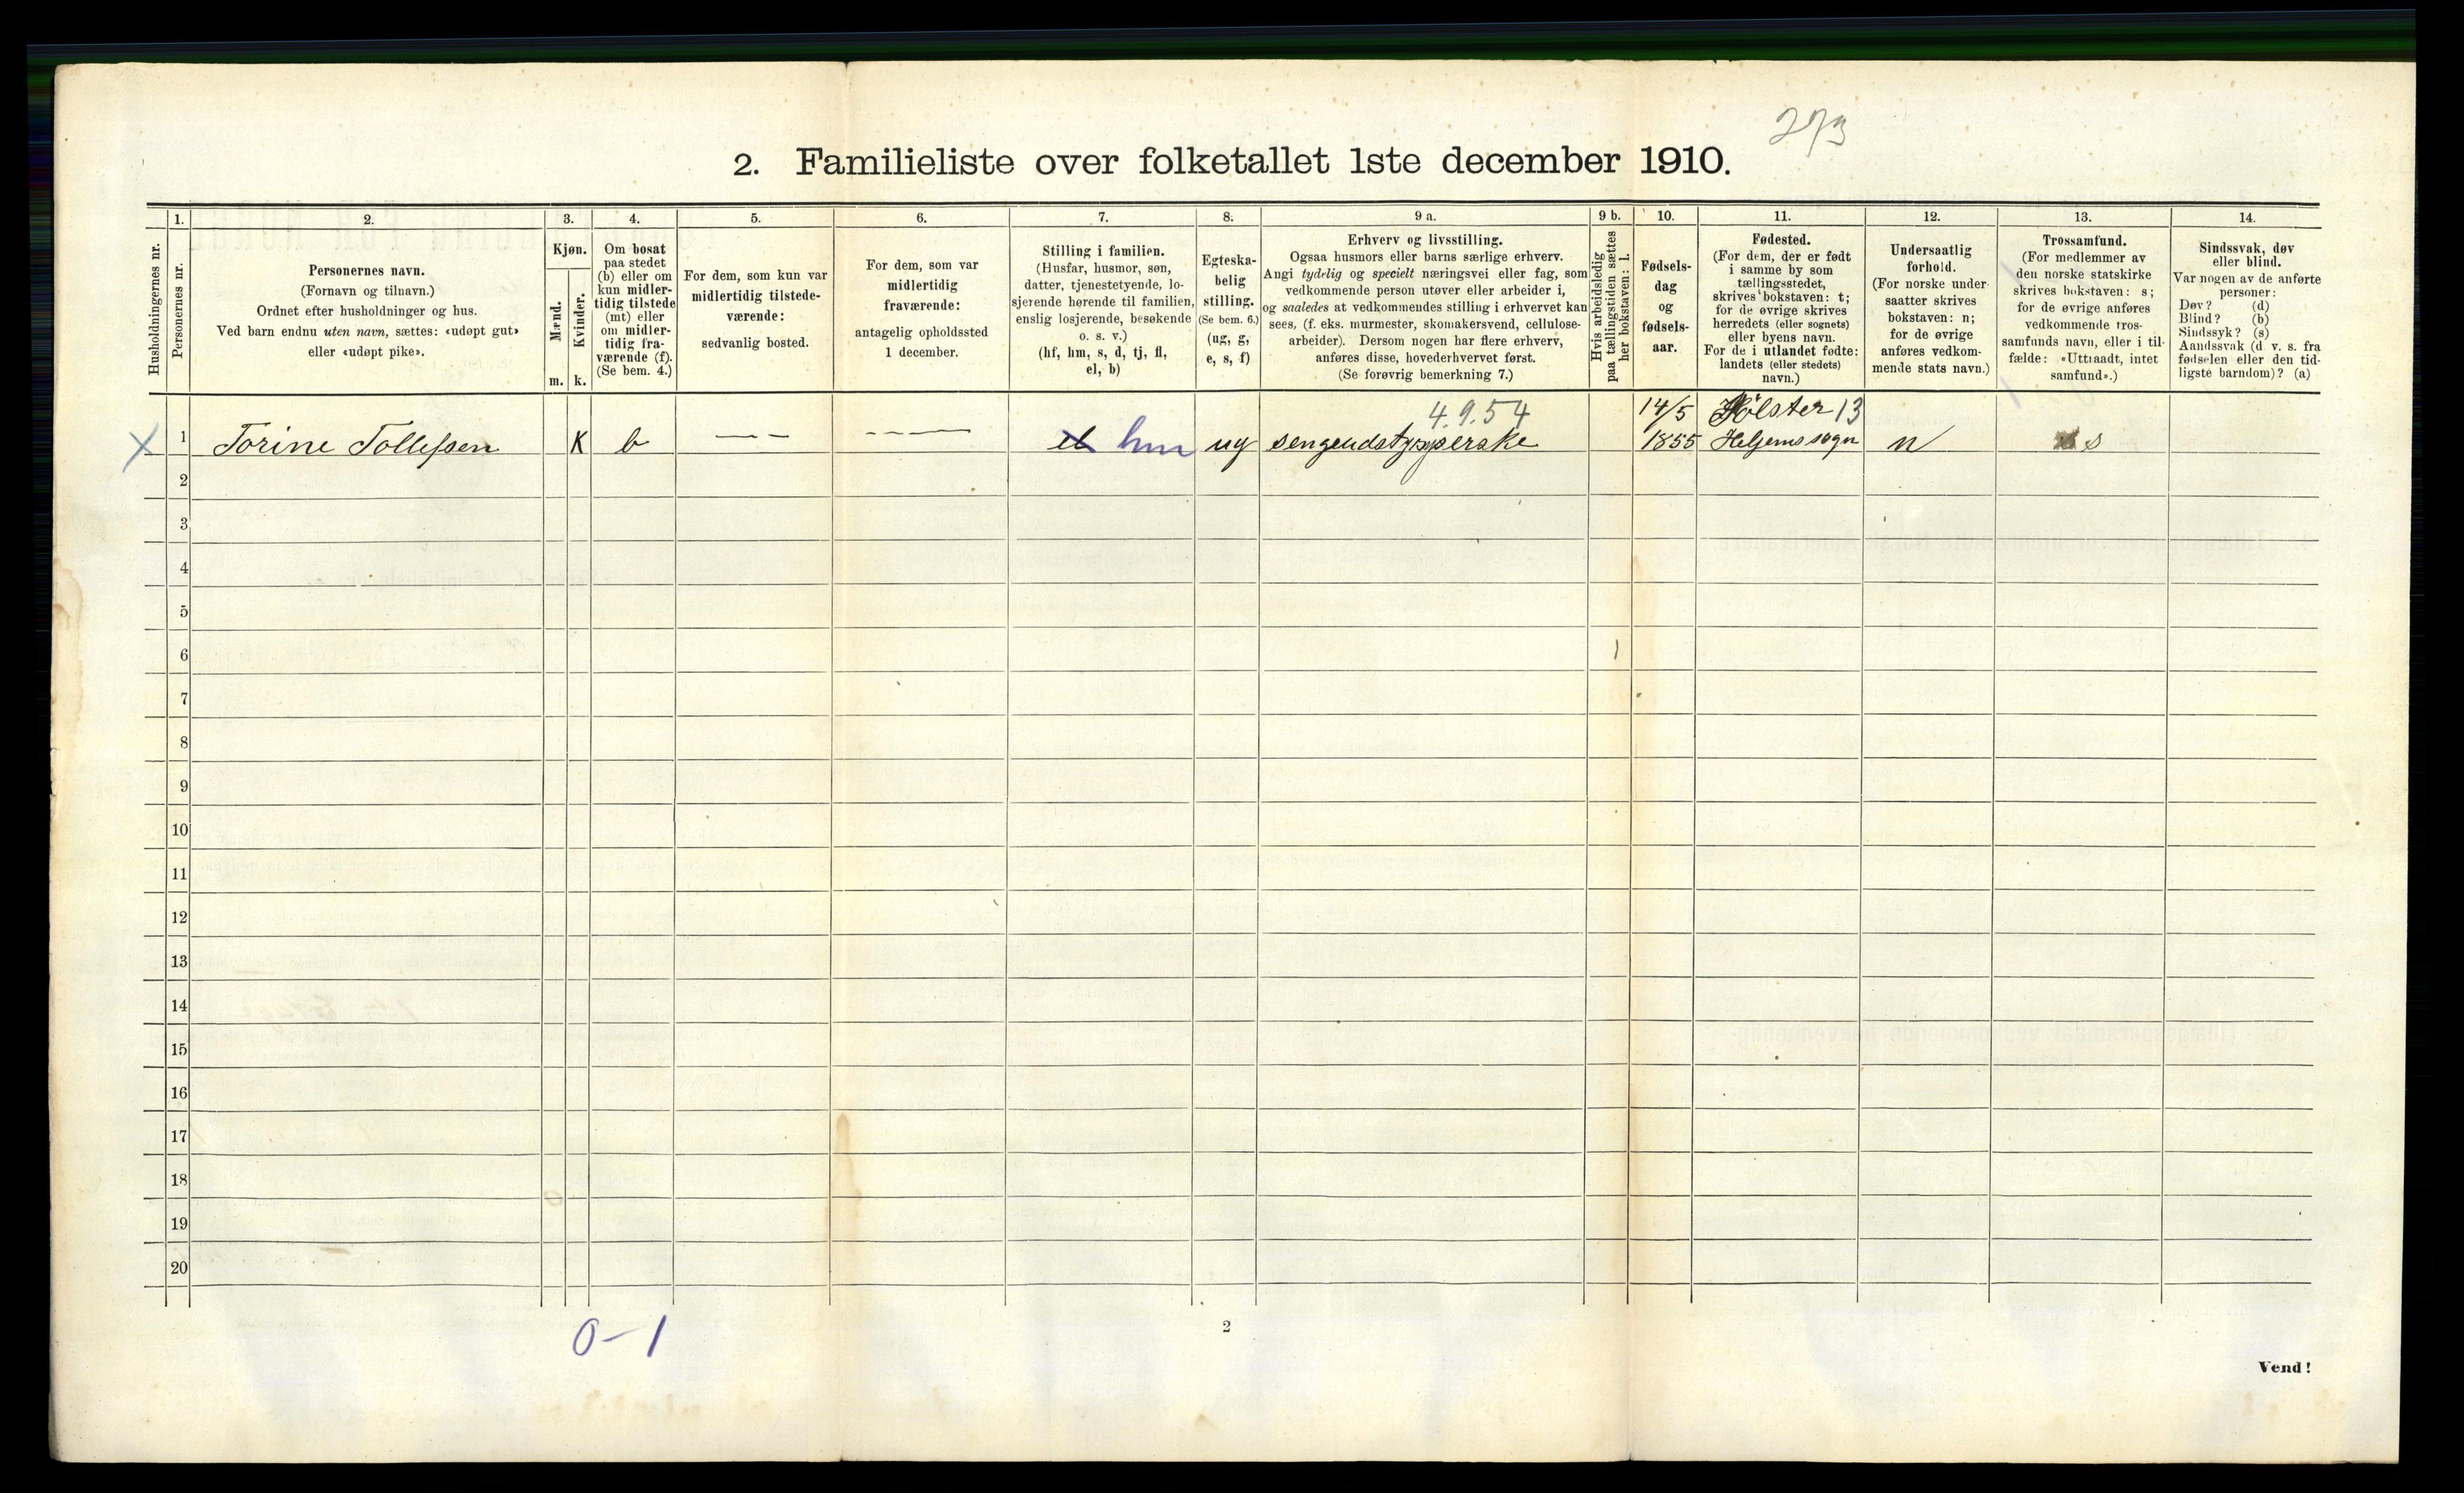 273
2. Familieliste over folketallet 1ste december 1910.
1. 2. 3. 4. 5. 6. 7. 8. 9 a. 9 b. 10. 11. 12. 13. 14.
Husholdningernes nr.
Personernes nr.
Personernes navn.
(Fornavn og tilnavn.)
Ordnet efter husholdninger og hus.
Ved barn endnu uten navn, sættes: «udøpt gut»
eller «udøpt pike».
Kjøn.
Mænd.
Kvinder.
m. k.
Om bosat
paa stedet
(b) eller om
kun midler-
tidig tilstede
(mt) eller
om midler-
tidig fra-
værende (f).
(Se bem. 4.)
For dem, som kun var
midlertidig tilstede-
værende:
sedvanlig bosted.
For dem, som var
midlertidig
fraværende:
antagelig opholdssted
1 december.
Stilling i familien.
(Husfar, husmor, søn,
datter, tjenestetyende, lo-
sjerende hørende til familien,
enslig losjerende, besøkende
o. s. v.)
(hf, hm, s, d, tj, fl,
el, b)
Egteska-
belig
stilling.
(Se bem. 6.)
(ug, g,
e, s, f)
Erhverv og livsstilling.
Ogsaa husmors eller barns særlige erhverv.
Angi tydelig og specielt næringsvei eller fag, som
vedkommende person utøver eller arbeider i,
og saaledes at vedkommendes stilling i erhvervet kan
sees, (f. eks. murmester, skomakersvend, cellulose-
arbeider). Dersom nogen har flere erhverv,
anføres disse, hovederhvervet først.
(Se forøvrig bemerkning 7.)
Hvis arbeidsledig
paa tællingstiden sættes
her bokstaven: l.
Fødsels-
dag
og
fødsels-
aar.
Fødested.
(For dem, der er født
i samme by som
tællingsstedet,
skrives bokstaven: t;
for de øvrige skrives
herredets (eller sognets)
eller byens navn.
For de i utlandet fødte:
landets (eller stedets)
navn.)
Undersaatlig
forhold.
(For norske under-
saatter skrives
bokstaven: n;
for de øvrige
anføres vedkom-
mende stats navn.)
Trossamfund.
(For medlemmer av
den norske statskirke
skrives bokstaven: s;
for de øvrige anføres
vedkommende tros-
samfunds navn, eller i til-
fælde: «Uttraadt, intet
samfund».)
Sindssvak, døv
eller blind.
Var nogen av de anførte
personer:
Døv? (d)
Blind? (b)
Sindssyk? (s)
Aandssvak (d. v. s. fra
fødselen eller den tid-
ligste barndom)? (a)
4.9.54 14/5 Hölster 13
X 1 Torine Tollefsen K b — — — — — el hm ug sengeudstypperske 1855 Helgems sogn n s
2
3
4
5
6
7
8
9
10
11
12
13
14
15
16
17
18
19
20
0 - 1
2
Vend!